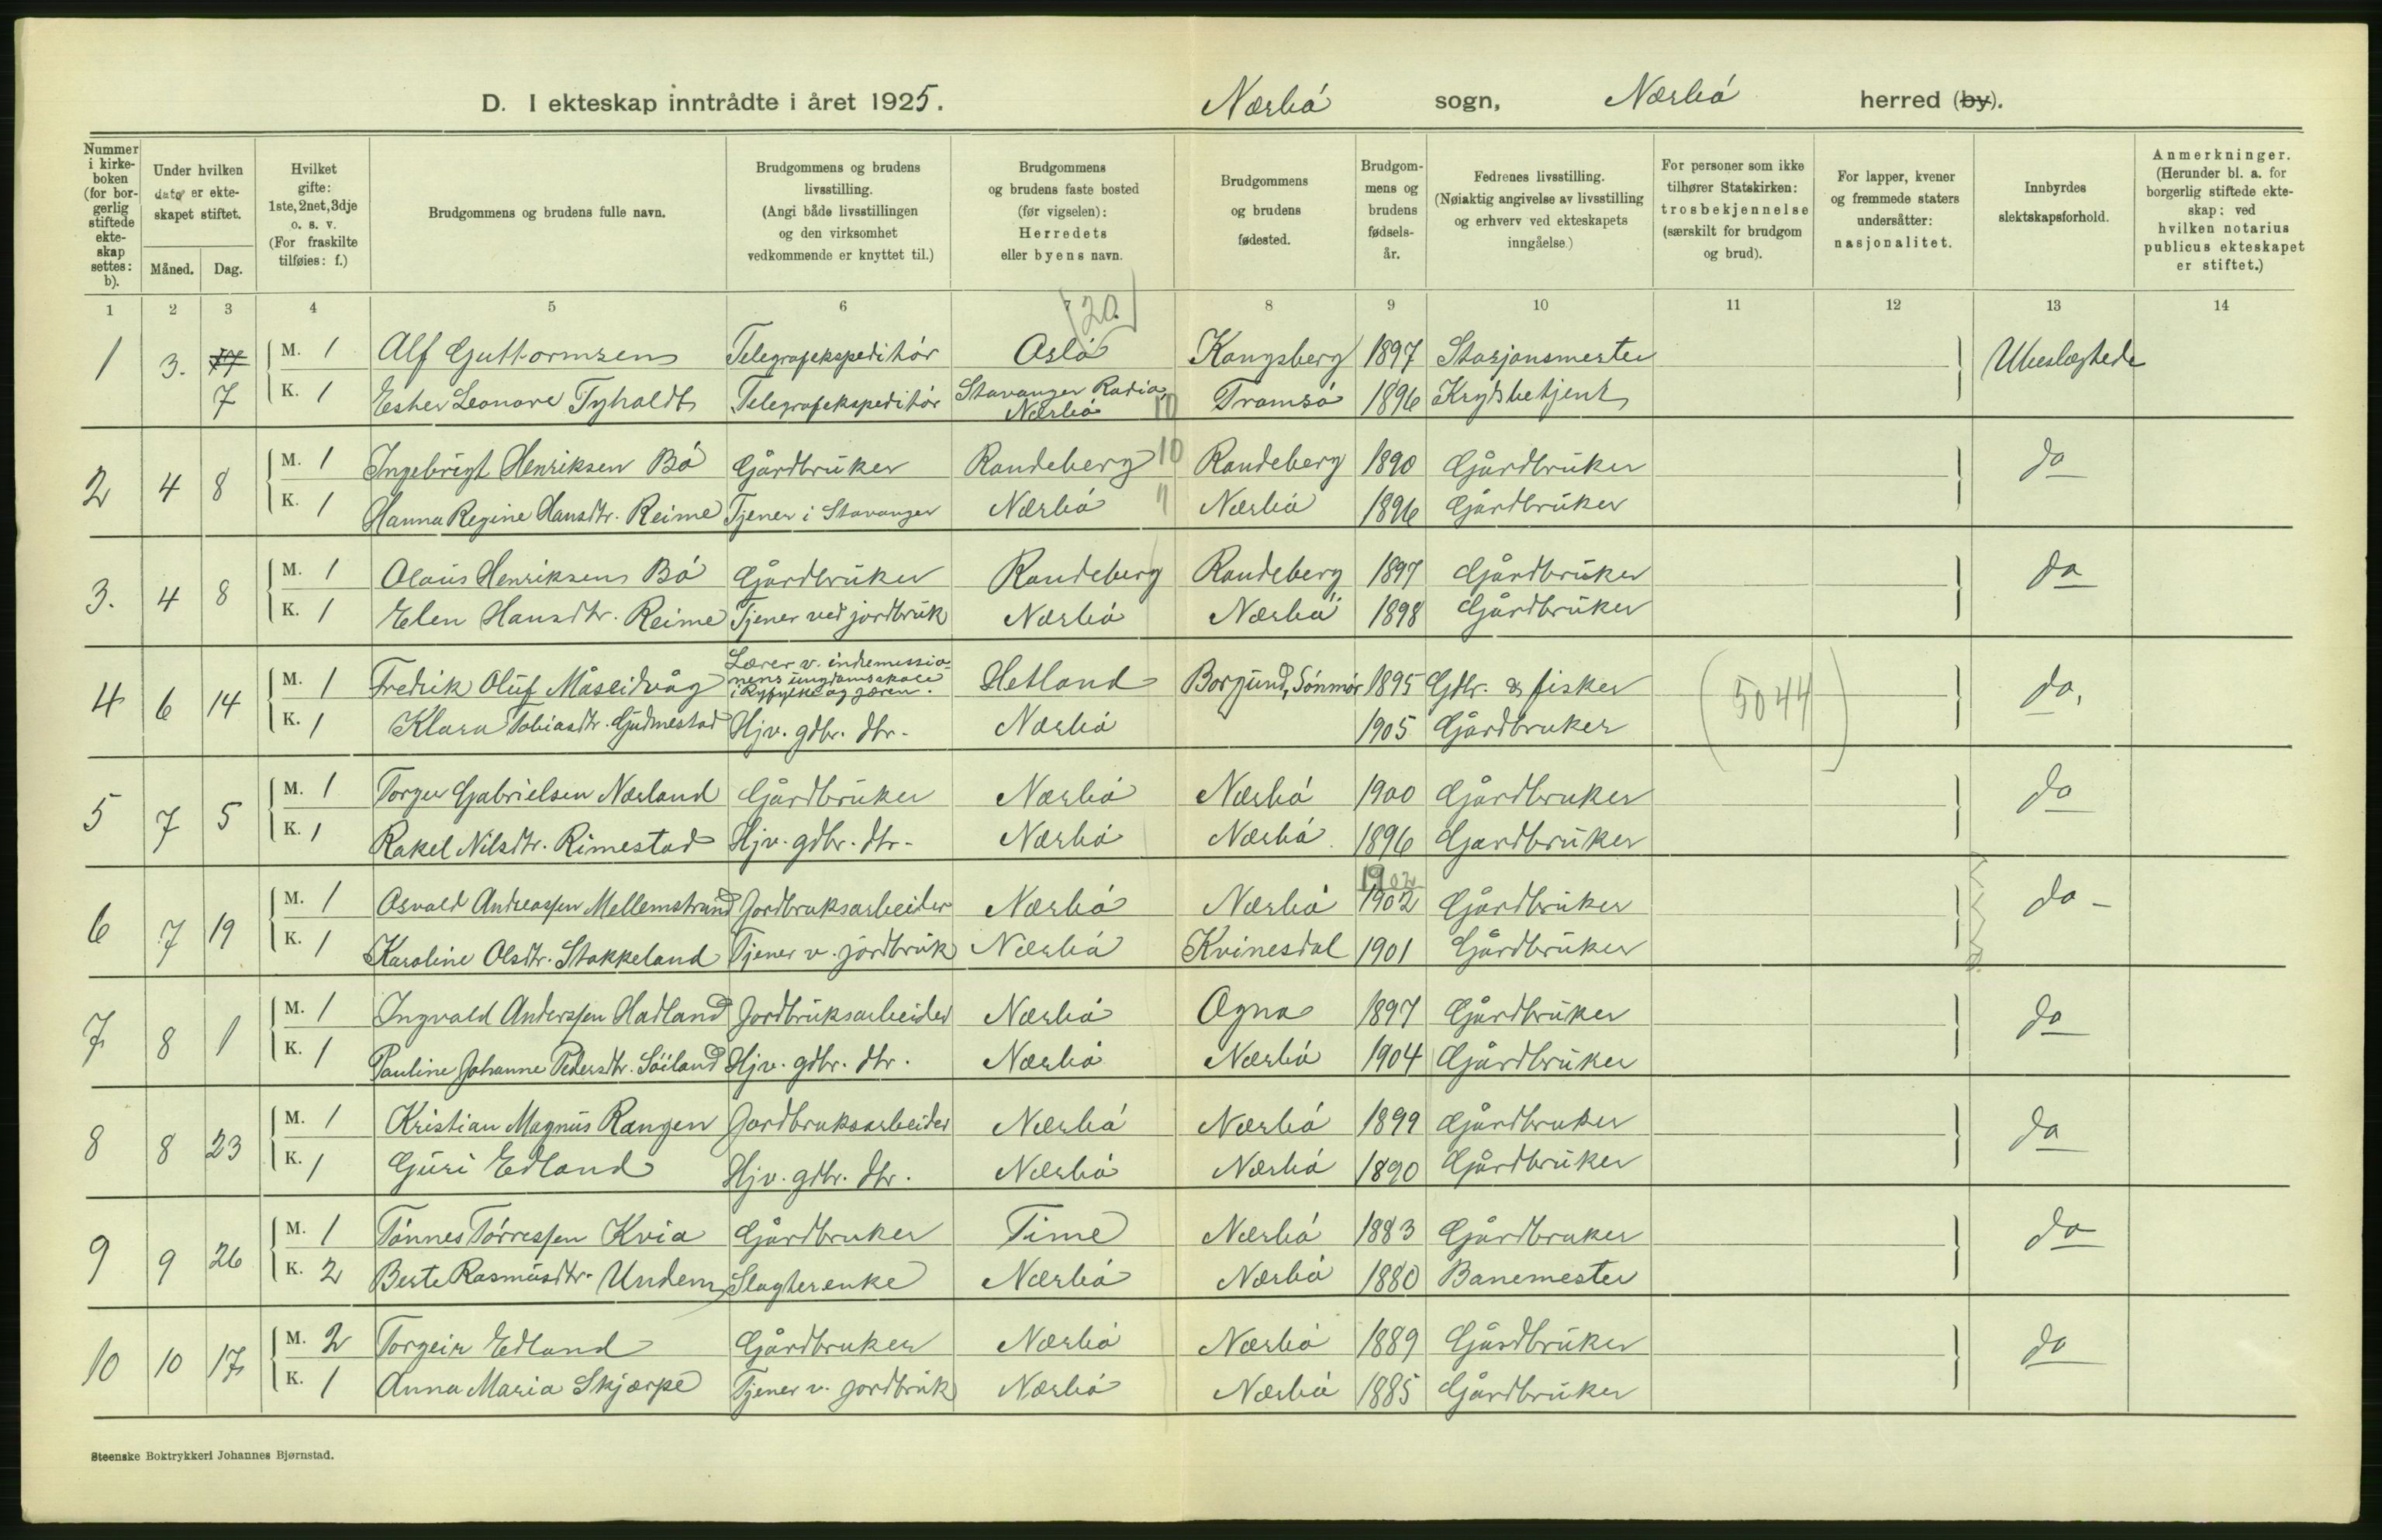 D. I ekteskap inntrådte i året 1925. Nærbö sogn, Nærbö herred (by).
Nummer i kirke-boken (for bor-gerlig stiftede ekte-skap settes: b).
Under hvilken dato er ekte-skapet stiftet.
Måned. Dag.
Hvilket gifte: 1ste, 2net, 3dje o. s. v. (For fraskilte tilføies: f.)
Brudgommens og brudens fulle navn.
Brudgommens og brudens livsstilling. (Angi både livsstillingen og den virksomhet vedkommende er knyttet til.)
Brudgommens og brudens faste bosted (før vigselen): Herredets eller byens navn.
Brudgommens og brudens fødested.
Brudgom-mens og brudens fødsels-år.
Fedrenes livsstilling. (Nøiaktig angivelse av livsstilling og erhverv ved ekteskapets inngåelse.)
For personer som ikke tilhører Statskirken: trosbekjennelse (særskilt for brudgom og brud).
For lapper, kvener og fremmede staters undersåtter: nasjonalitet.
Innbyrdes slektskapsforhold.
Anmerkninger. (Herunder bl. a. for borgerlig stiftede ekte-skap: ved hvilken notarius publicus ekteskapet er stiftet.)
1 2 3 4 5 6 7 8 9 10 11 12 13 14
(20.)
1 3. 17 M. 1 Alf Guttormsen Telegrafekspeditör Oslo Kongsberg 1897 Stasjonsmester Ubeslegtede
7 K. 1 Esther Leonore Tyholdt Telegrafekspeditör Stavanger Radio, Nærbö 10 Tromsö 1896 Krydsbetjent
2 4 8 M. 1 Ingebrigt Henriksen Bö Gårdbruker Randeberg 10 Randeberg 1890 Gårdbruker do
K. 1 Hanna Regine Hansdtr. Reime Tjener i Stavanger Nærbö " Nærbö 1896 Gårdbruker
3. 4 8 M. 1 Olaus Henriksen Bö Gårdbruker Randeberg Randeberg 1897 Gårdbruker do
K. 1 Elen Hansdtr. Reime Tjener ved jordbruk Nærbö Nærbö 1898 Gårdbruker
4 6 14 M. 1 Fredrik Oluf Måseidvåg Lærer v. indremissio-nens ungdomsskole i Ryfylke og Jæren. Hetland Borgund, Sönmör 1895 Gdbr. & fisker (5044) do.
K. 1 Klara Tobiasdtr. Gudmestad Hjv. gdbr. dtr. Nærbö 1905 Gårdbruker
5 7 5 M. 1 Torger Gabrielsen Nærland Gårdbruker Nærbö Nærbö 1900 Gårdbruker do
K. 1 Rakel Nilsdtr. Rimestad Hjv. gdbr. dtr. Nærbö Nærbö. 1896 Gardbruker
1902
6 7 19 M. 1 Osvald Andreassen Mellemstrand Jordbruksarbeider Nærbö Nærbö 1902 Gårdbruker do -
K. 1 Karoline Olsdtr. Stokkeland Tjener v. jordbruk Nærbö Kvinesdal 1901 Gårdbruker
7 8 1 M. 1 Ingvald Anderssen Hadland Jordbruksarbeider Nærbö Ogna 1897 Gårdbruker do
K. 1 Pauline Johanne Pedersdtr. Söiland Hjv. gdbr. dtr. Nærbö Nærbö 1904 Gårdbruker
8 8 23 M. 1 Kristian Magnus Rangen Jordbruksarbeider Nærbö Nærbö 1899 Gårdbruker do
K. 1 Guri Edland Hjv. gdbr. dtr. Nærbö Nærbö 1890 Gårdbruker
9 9 26 M. 1 Tönnes Törressen Kvia Gårdbruker Time Nærbö 1883 Gårdbruker do
K. 2 Berte Rasmusdtr. Undem Slagterenke Nærbö Nærbö 1880 Banemester
10 10 17 M. 2 Torgeir Edland Gårdbruker Nærbö Nærbö 1889 Gårdbruker do
K. 1 Anna Maria Skjærpe Tjener v. jordbruk Nærbö Nærbö 1885 Gårdbruker
Steenske Boktrykkeri Johannes Bjørnstad.